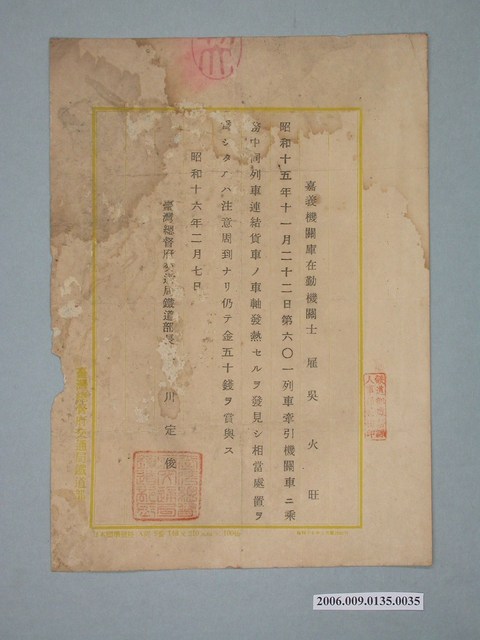 嘉義機關庫在勤機關士 雇 吳火旺
昭和十五年十一月二十二日第六〇一列車牽引機關車ニ乘
務中同列車連結貨車ノ車軸發熱セルヲ發見シ相當處置ヲ
シタルハ注意周到ナリ仍テ金五十錢ヲ賞與ス
昭和十六年二月七日
臺灣總督府交通局鐵道部長 川定俊
2006.009.0135.0035